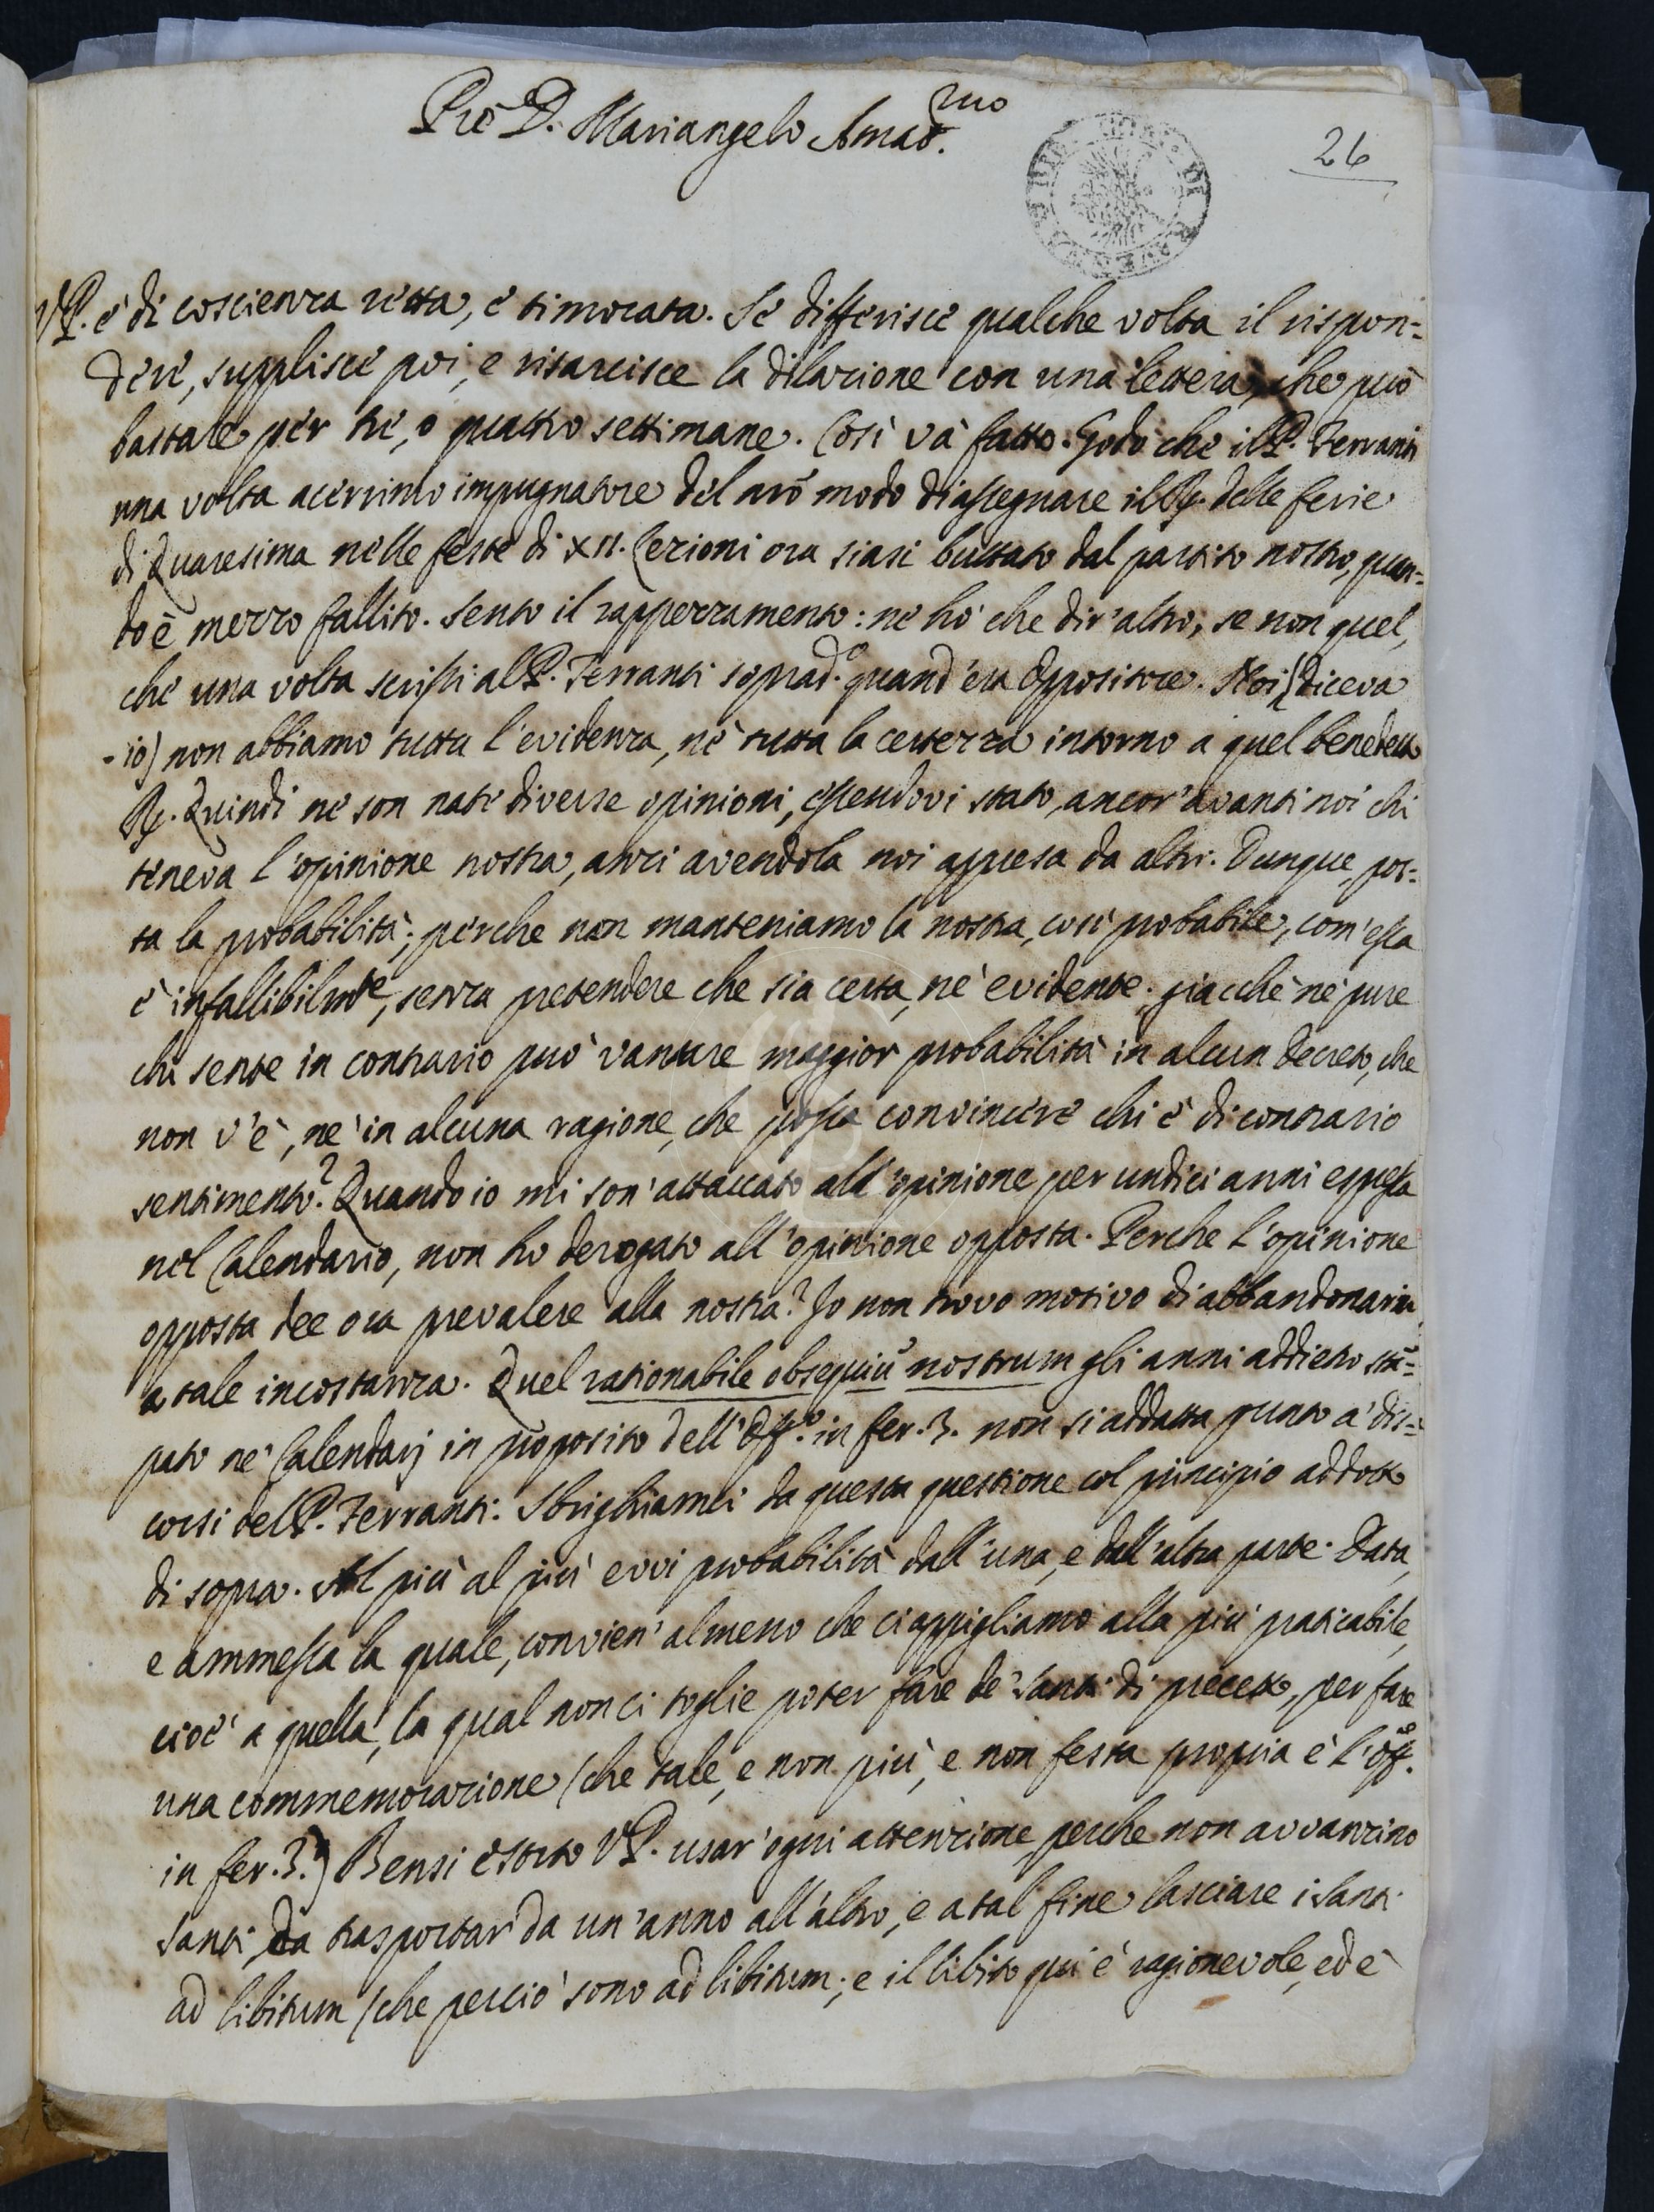 Prē D. Mariangelo Amad.mo
26
VP. è di coscienza retta, e timorata. Se differisce qualche volta il rispon=
dere, supplisce poi, e risarcisce la dilazione con una lettera, che può
bastare per trè, o quattro settimane. Così và fatto. Godo che il P. Ferranti
una volta acerrimo impugnatore del nrō modo di assegnare il ℟. delle ferie
di Quaresima nelle feste di XII. Lezioni ora siasi buttato dal partito nostro, quan=
do è mezzo fallito. Sento il rappezzamento: nè hò che dir'altro, se non quel,
che una volta scrissi al P. Ferranti soprad.o quand'era Oppositore. Noi (diceva
io) non abbiamo tutta l'evidenza, nè tutta la certezza intorno a quel benedetto
℟. Quindi ne son nate diverse opinioni, essendovi stato, ancor'avanti noi chi
teneva l'opinione nostra, anzi avendola noi appresa da altri. Dunque, pos=
ta la probabilità; perche non manteniamo la nostra, così probabile, com'essa
è infallibilmte, senza pretendere che sia certa, nè evidente; giacchè nè pure
chi sente in contrario può vantare maggior probabilità in alcun decreto, che
non v'è, nè in alcuna ragione, che possa convincere chi è di contrario
sentimento? Quando io mi son'attaccato all'opinione per undici anni espressa
nel Calendario, non ho derogato all'opinione opposta. Perche l'opinione
opposta dee ora prevalere alla nostra? Io non trovo motivo di abbandonarmi
a tale incostanza. Quel rationabile obsequiū nostrum gli anni addietro stā=
pato ne' Calendarj in proposito dell'Off.o in fer. 3. non si addatta punto a' dis=
corsi del P. Ferranti. Sbrighiamci da questa questione col principio addotto
di sopra. Al più al più evvi probabilità dall'una, e dall'altra parte. Data,
e ammessa la quale, convien'almeno che ci appigliamo alla più praticabile,
cioè a quella, la qual non ci toglie poter fare de' Santi di precetto, per fare
una commemorazione (che tale, e non più, e non festa propria è l'Off.o
in fer. 3.) Bensi esorto VP. usar'ogni attenzione perche non avvanzino
Santi, da trasportar da un'anno all'altro, e a tal fine lasciare i Santi
ad libitum (che perciò sono ad libitum; e il libito qui è ragionevole, ed è